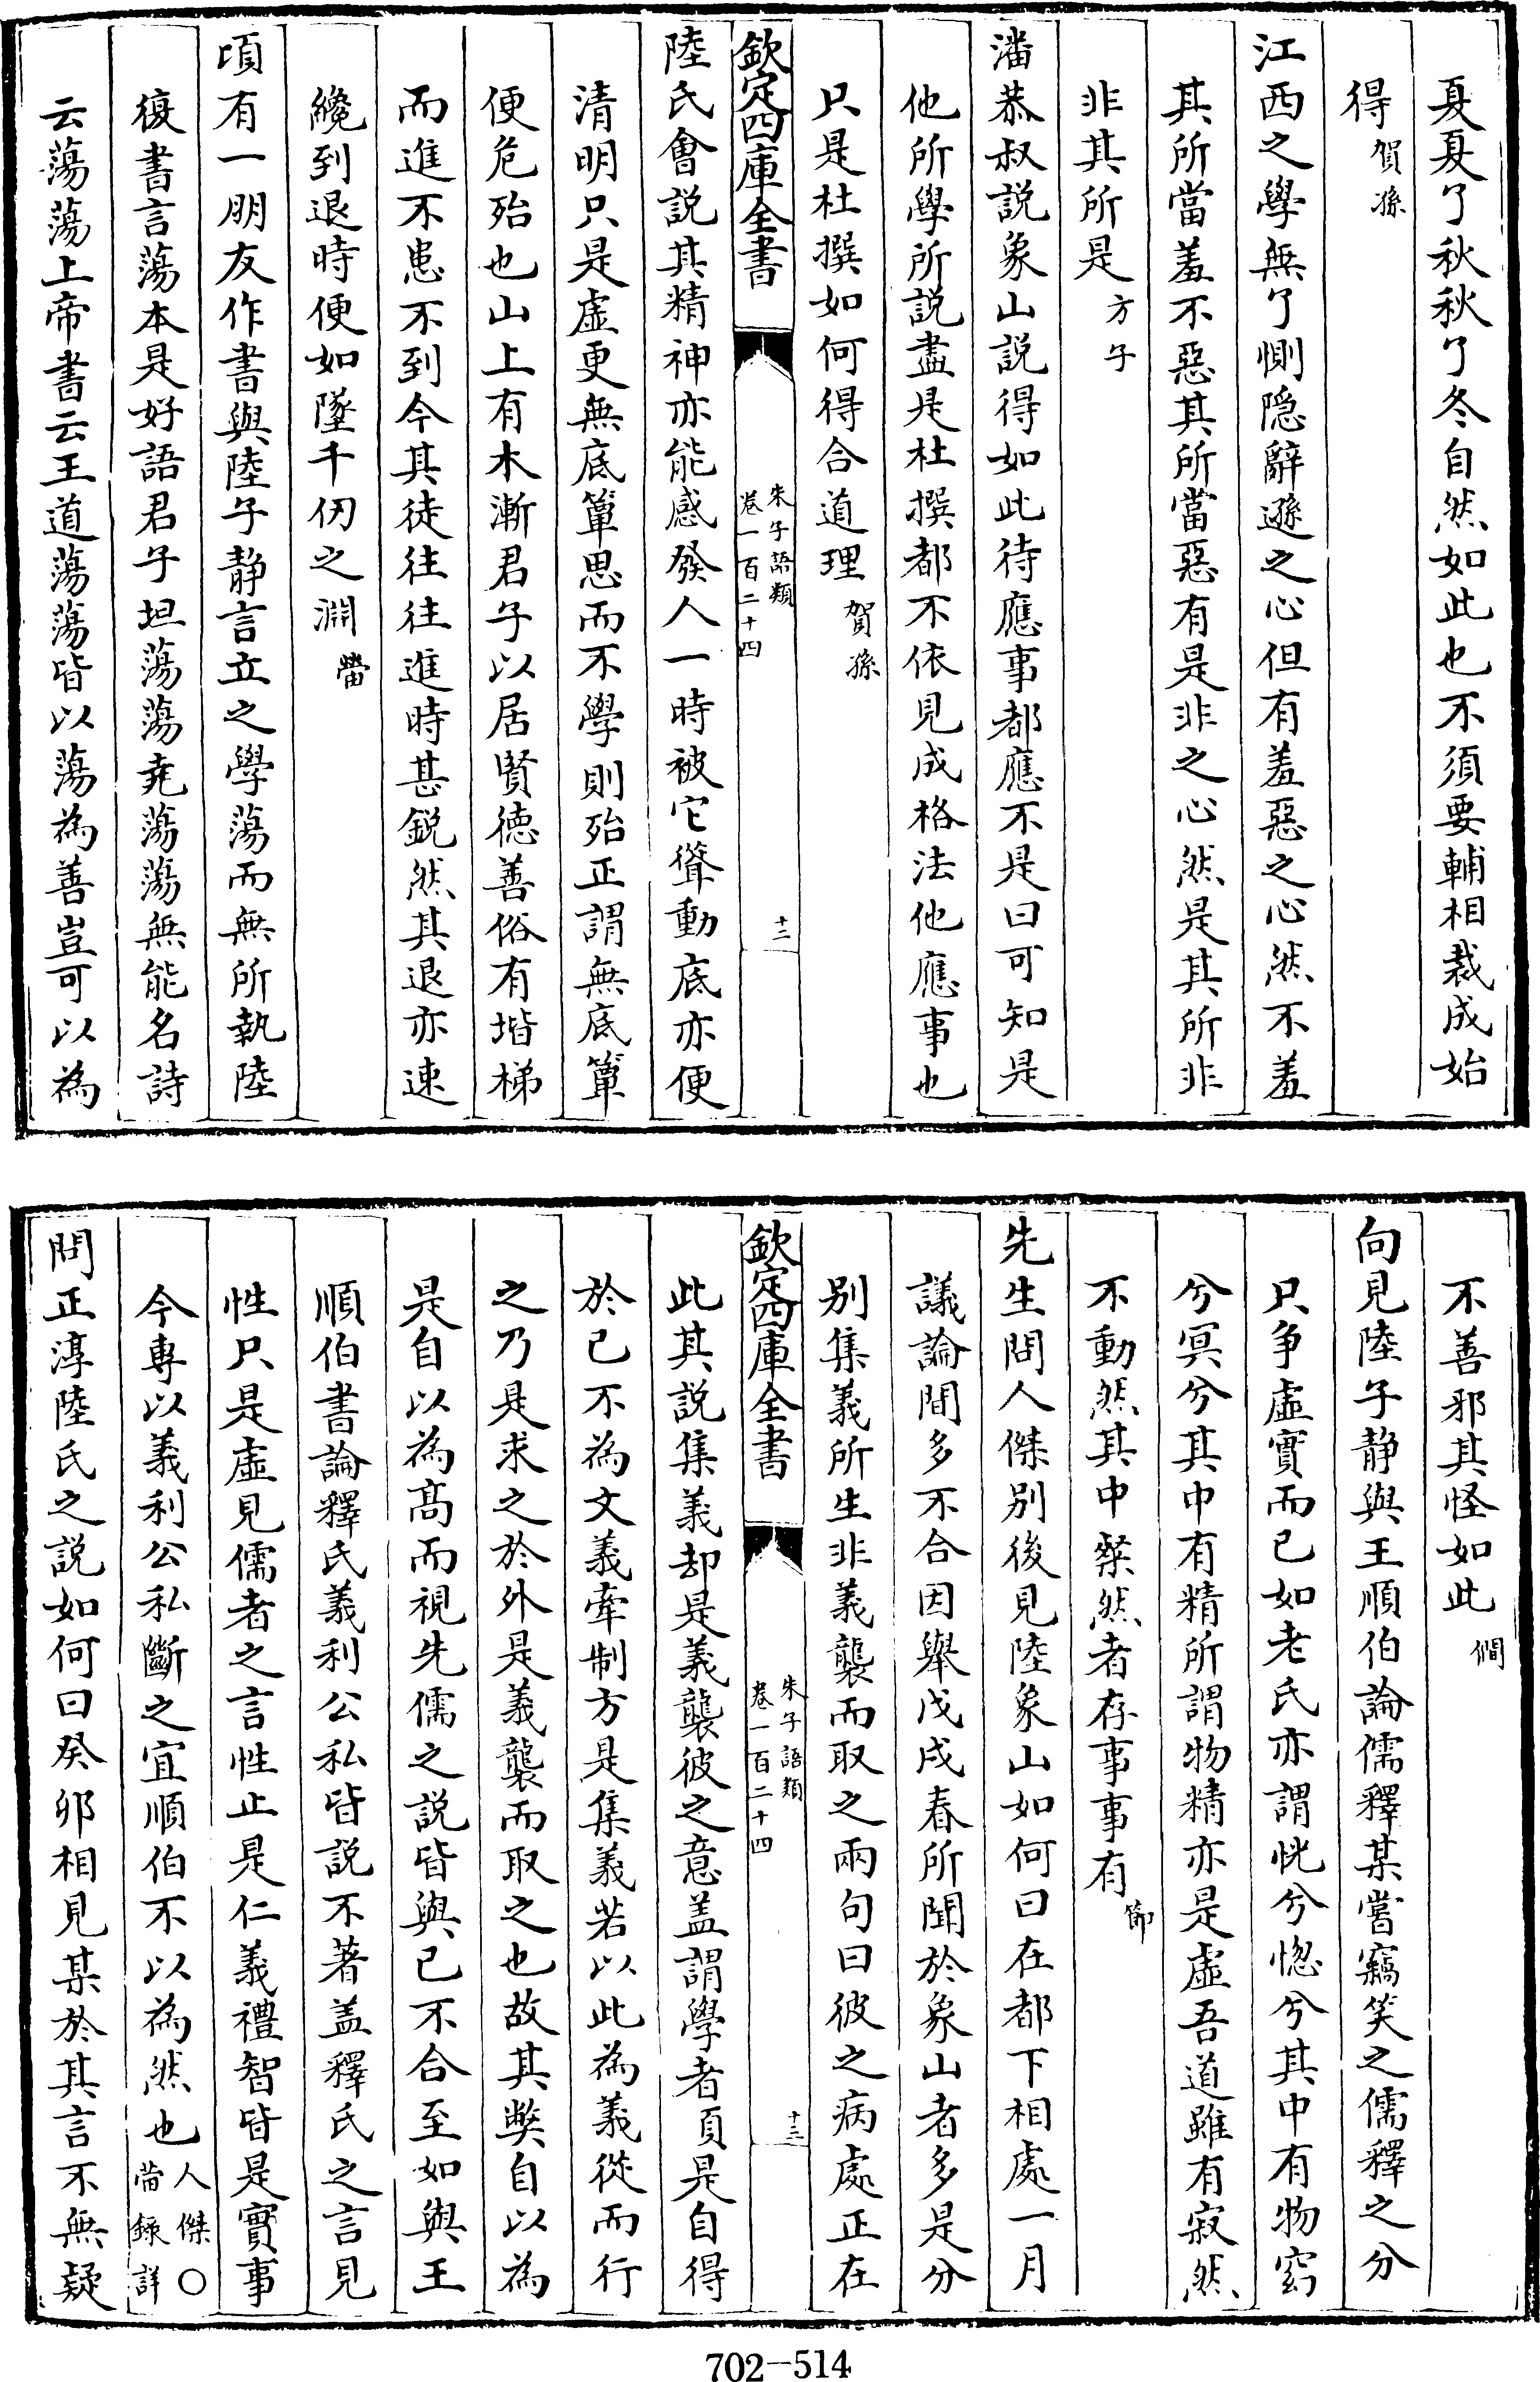 夏夏了秋秋了冬自然如此也不須要輔相裁成始
得賀孫
江西之學無了惻隠辭遜之心但有羞惡之心然不羞
其所當羞不惡其所當惡有是非之心然是其所非
非其所是方子
潘恭叔説象山説得如此待應事都應不是曰可知是
他所學所説盡是杜撰都不依見成格法他應事也
只是杜撰如何得合道理賀孫
欽定四庫全書
朱子語類
卷一百二十四
十二
陸氏會説其精神亦能感發人一時被它聳動底亦便
清明只是虛更無底簟思而不學則殆正謂無底簟
便危殆也山上有木漸君子以居賢徳善俗有堦梯
而進不患不到今其徒往往進時甚鋭然其退亦速
纔到退時便如墜千仞之淵㽦
頃有一朋友作書與陸子静言立之學蕩而無所執陸
復書言蕩本是好語君子坦蕩蕩堯蕩蕩無能名詩
云蕩蕩上帝書云王道蕩蕩皆以蕩為善豈可以為
不善邪其怪如此僩
向見陸子静與王順伯論儒釋某嘗竊笑之儒釋之分
只争虛實而已如老氏亦謂恍兮惚兮其中有物窈
兮冥兮其中有精所謂物精亦是虛吾道雖有寂然
不動然其中粲然者存事事有節
先生問人傑別後見陸象山如何曰在都下相處一月
議論間多不合因舉戊戌春所聞於象山者多是分
别集義所生非義襲而取之兩句曰彼之病處正在
欽定四庫全書
朱子語類
卷一百二十四
十三
此其説集義却是義襲彼之意盖謂學者湏是自得
於已不為文義牽制方是集義若以此為義從而行
之乃是求之於外是義襲而取之也故其弊自以為
是自以為髙而視先儒之説皆與已不合至如與王
順伯書論釋氏義利公私皆説不著盖釋氏之言見
性只是虛見儒者之言性止是仁義禮智皆是實事
今専以義利公私斷之宜順伯不以為然也人傑○㽦録詳
問正淳陸氏之説如何曰癸卯相見某於其言不無疑
702-514